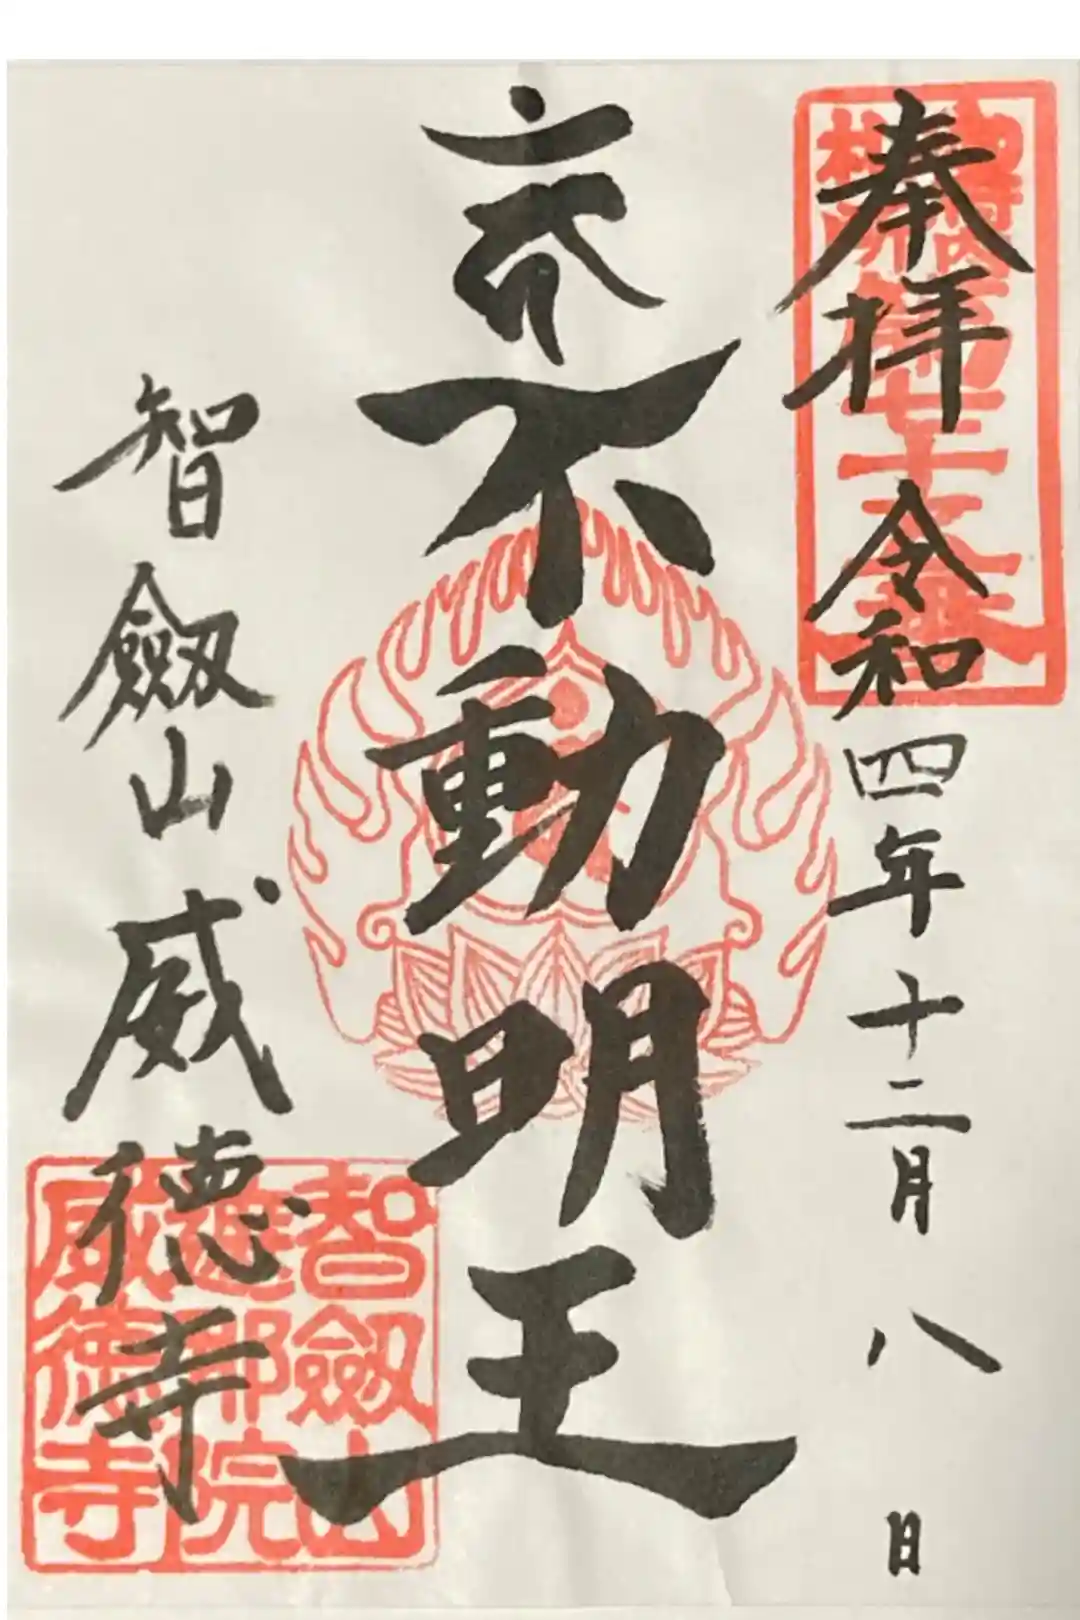 奉拝 令和四年十二月八日
不動明王
智劔山威徳寺
智劔山
遮那院
威徳寺